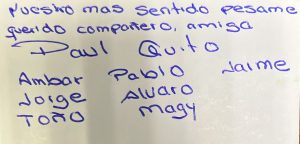 Nuestro mas sentido pesame
querido compañero, amigo
Paul Quito
Ambar Pablo Jaime
Jorge Alvaro
Toño Magy